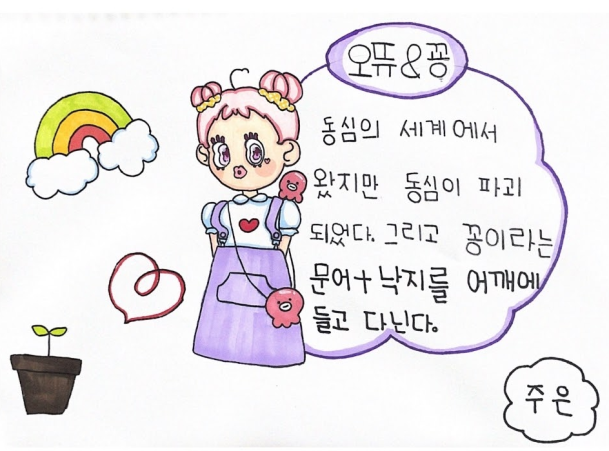 오퓨&꽁
동심의 세계에서
왔지만 동심이 파괴
되었다. 그리고 꽁이라는
문어+낙지를 어깨에
들고 다닌다.
주은